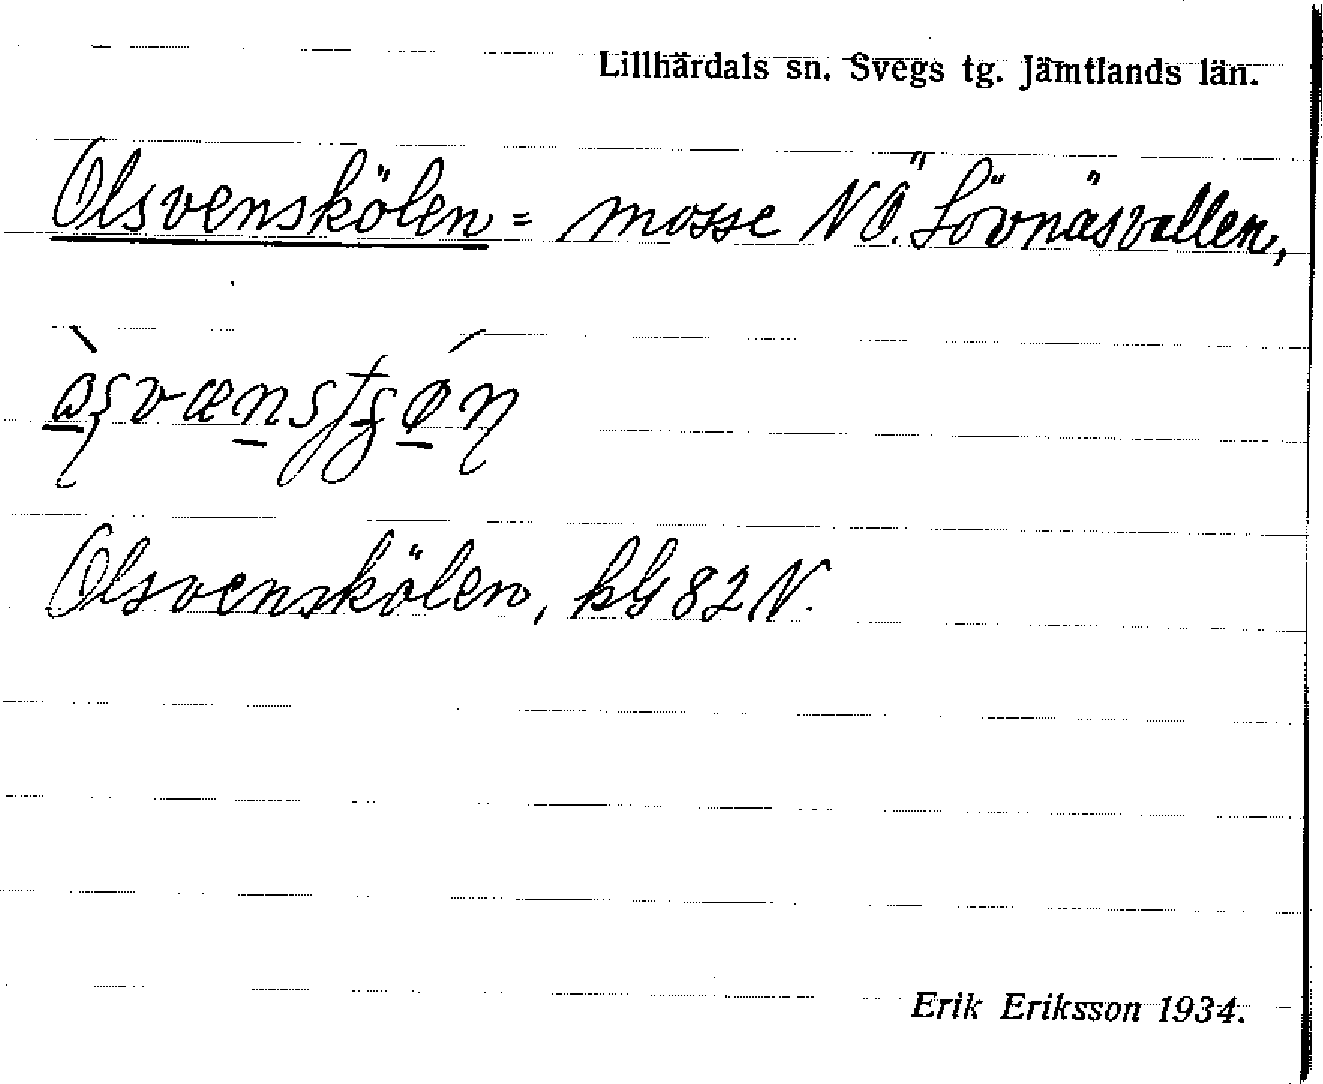 Lillhärdals sn. Svegs tg. Jämtlands län.
Olsvenskölen = mosse NÖ. Lövnäsvallen,
Olsvenskölen, kG 82 N.
Erik Eriksson 1934.